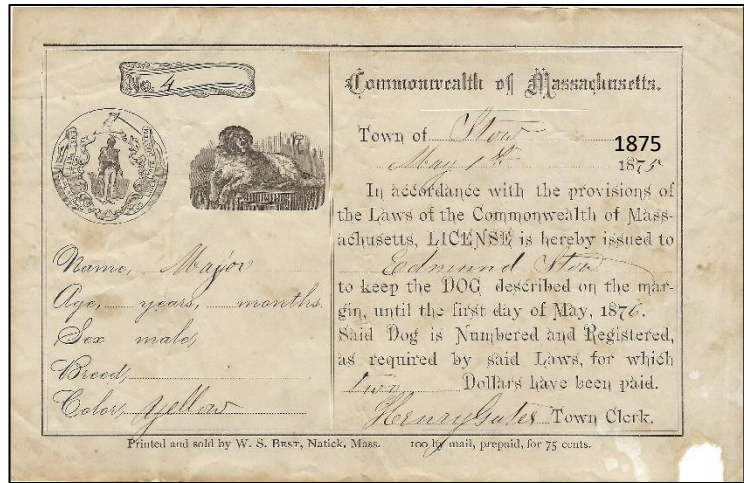 No. 4
Name, Major
Age, years, months.
Sex male,
Breed,
Color, yellow
Commonwealth of Massachusetts.
Town of Stow
1875
May 1st 1875
In accordance with the provisions of
the Laws of the Commonwealth of Mass-
achusetts, LICENSE is hereby issued to
Edmund Stow
to keep the DOG described on the mar-
gin, until the first day of May, 1876.
Said Dog is Numbered and Registered,
as required by said Laws, for which
two Dollars have been paid.
Henry Gates Town Clerk.
Printed and sold by W. S. BEST, Natick, Mass. 100 by mail, prepaid, for 75 cents.